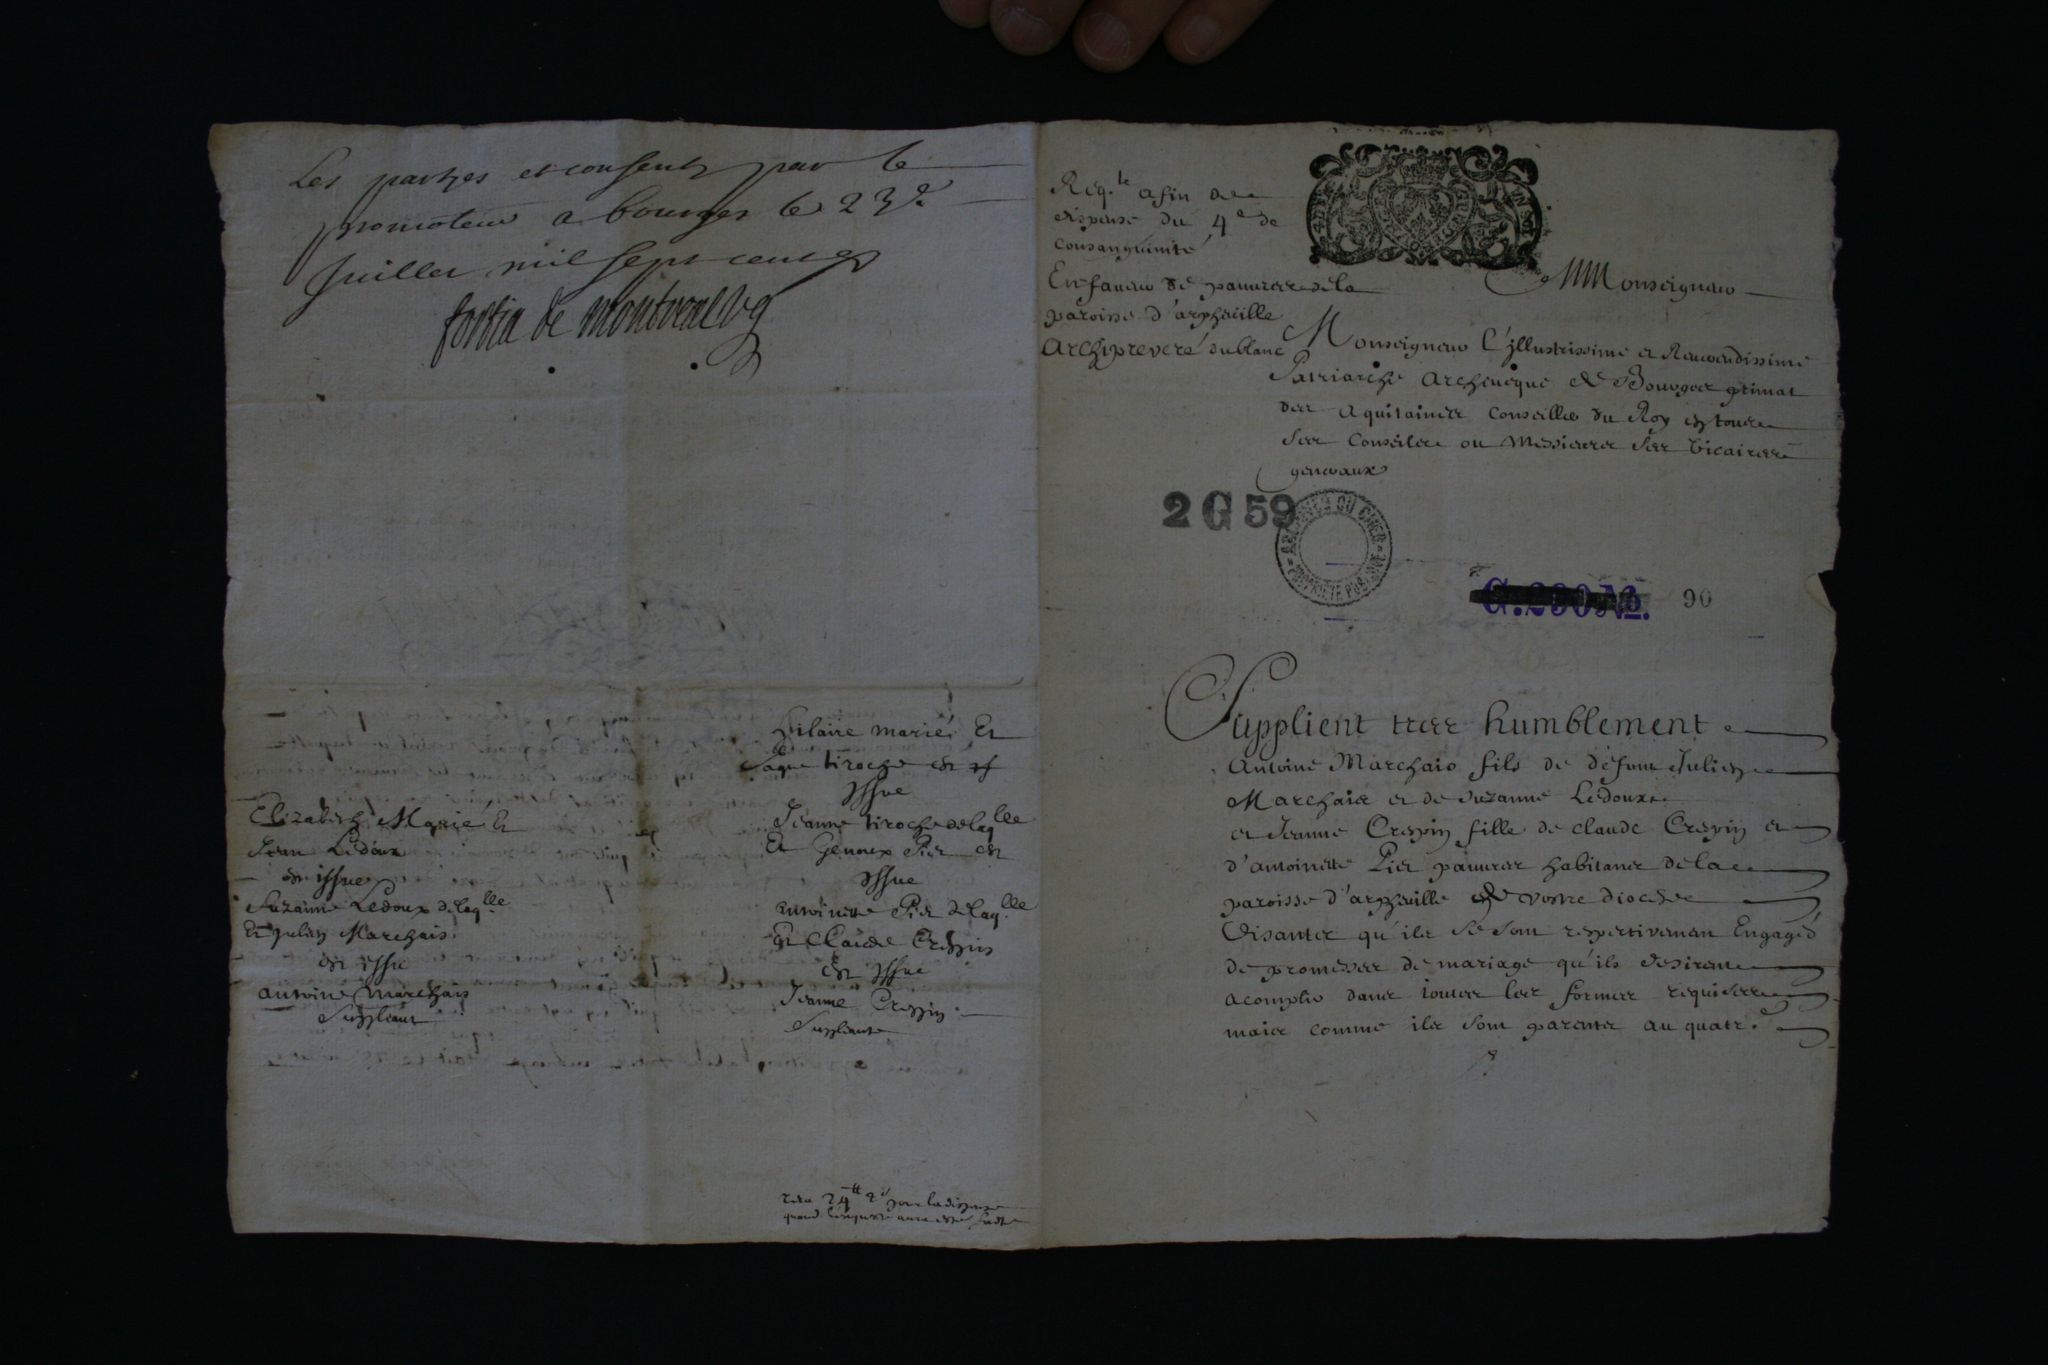 Les partyes et consenty par le
promoteur a bourges le 23e
Juillet mil sept cent
fortin de montreal vg
hilaire marié Et
Jaque tiroche est
yssue
Elizabeth Marié Et
Jean Ledoux
est issue
Suzanne Ledoux delaqlle
Et Julien Marchais
est issu
antoine Marchais
Suppliant
Jeanne tiroche delaqlle
Et Genoux Pier est
yssue
antoinette Pier delaqlle
Et Claude Crespin
est yssue
Jeanne Crespin
Suppliante
24tt pour la dispense
quand faite
Reqte afin de
dispense du 4e de
consanguinité
Enfans de pauvres de la
paroisse d'arpheuille
Archipreveré du blanc
Monseigneur
Monseigneur L'jllustrissime et Reuerendissime
Patriarche Archeueque de Bourges primat
des Aquitaines Conseiller du Roy en tous
Ses Conseiles ou Messieurs Ses vicaires
generaux
2 G 59
ARCHIVES DU CHER
PROPRIETE PUBLIQUE
G.290 No. 90
Supplient tres humblement
Antoine Marchais fils de defunt Julien
Marchais et de Suzanne Ledoux
et Jeanne Crespin fille de claude Crespin et
d'antoinette Pier pauures habitans de la
paroisse d'arpheuille de votre diocese
Disantes qu'ils se sont respectivement Engagés
de promesses de mariage qu'ils desirent
acomplir dans toutes les formes requises
mais comme ils sont parentes au quatre